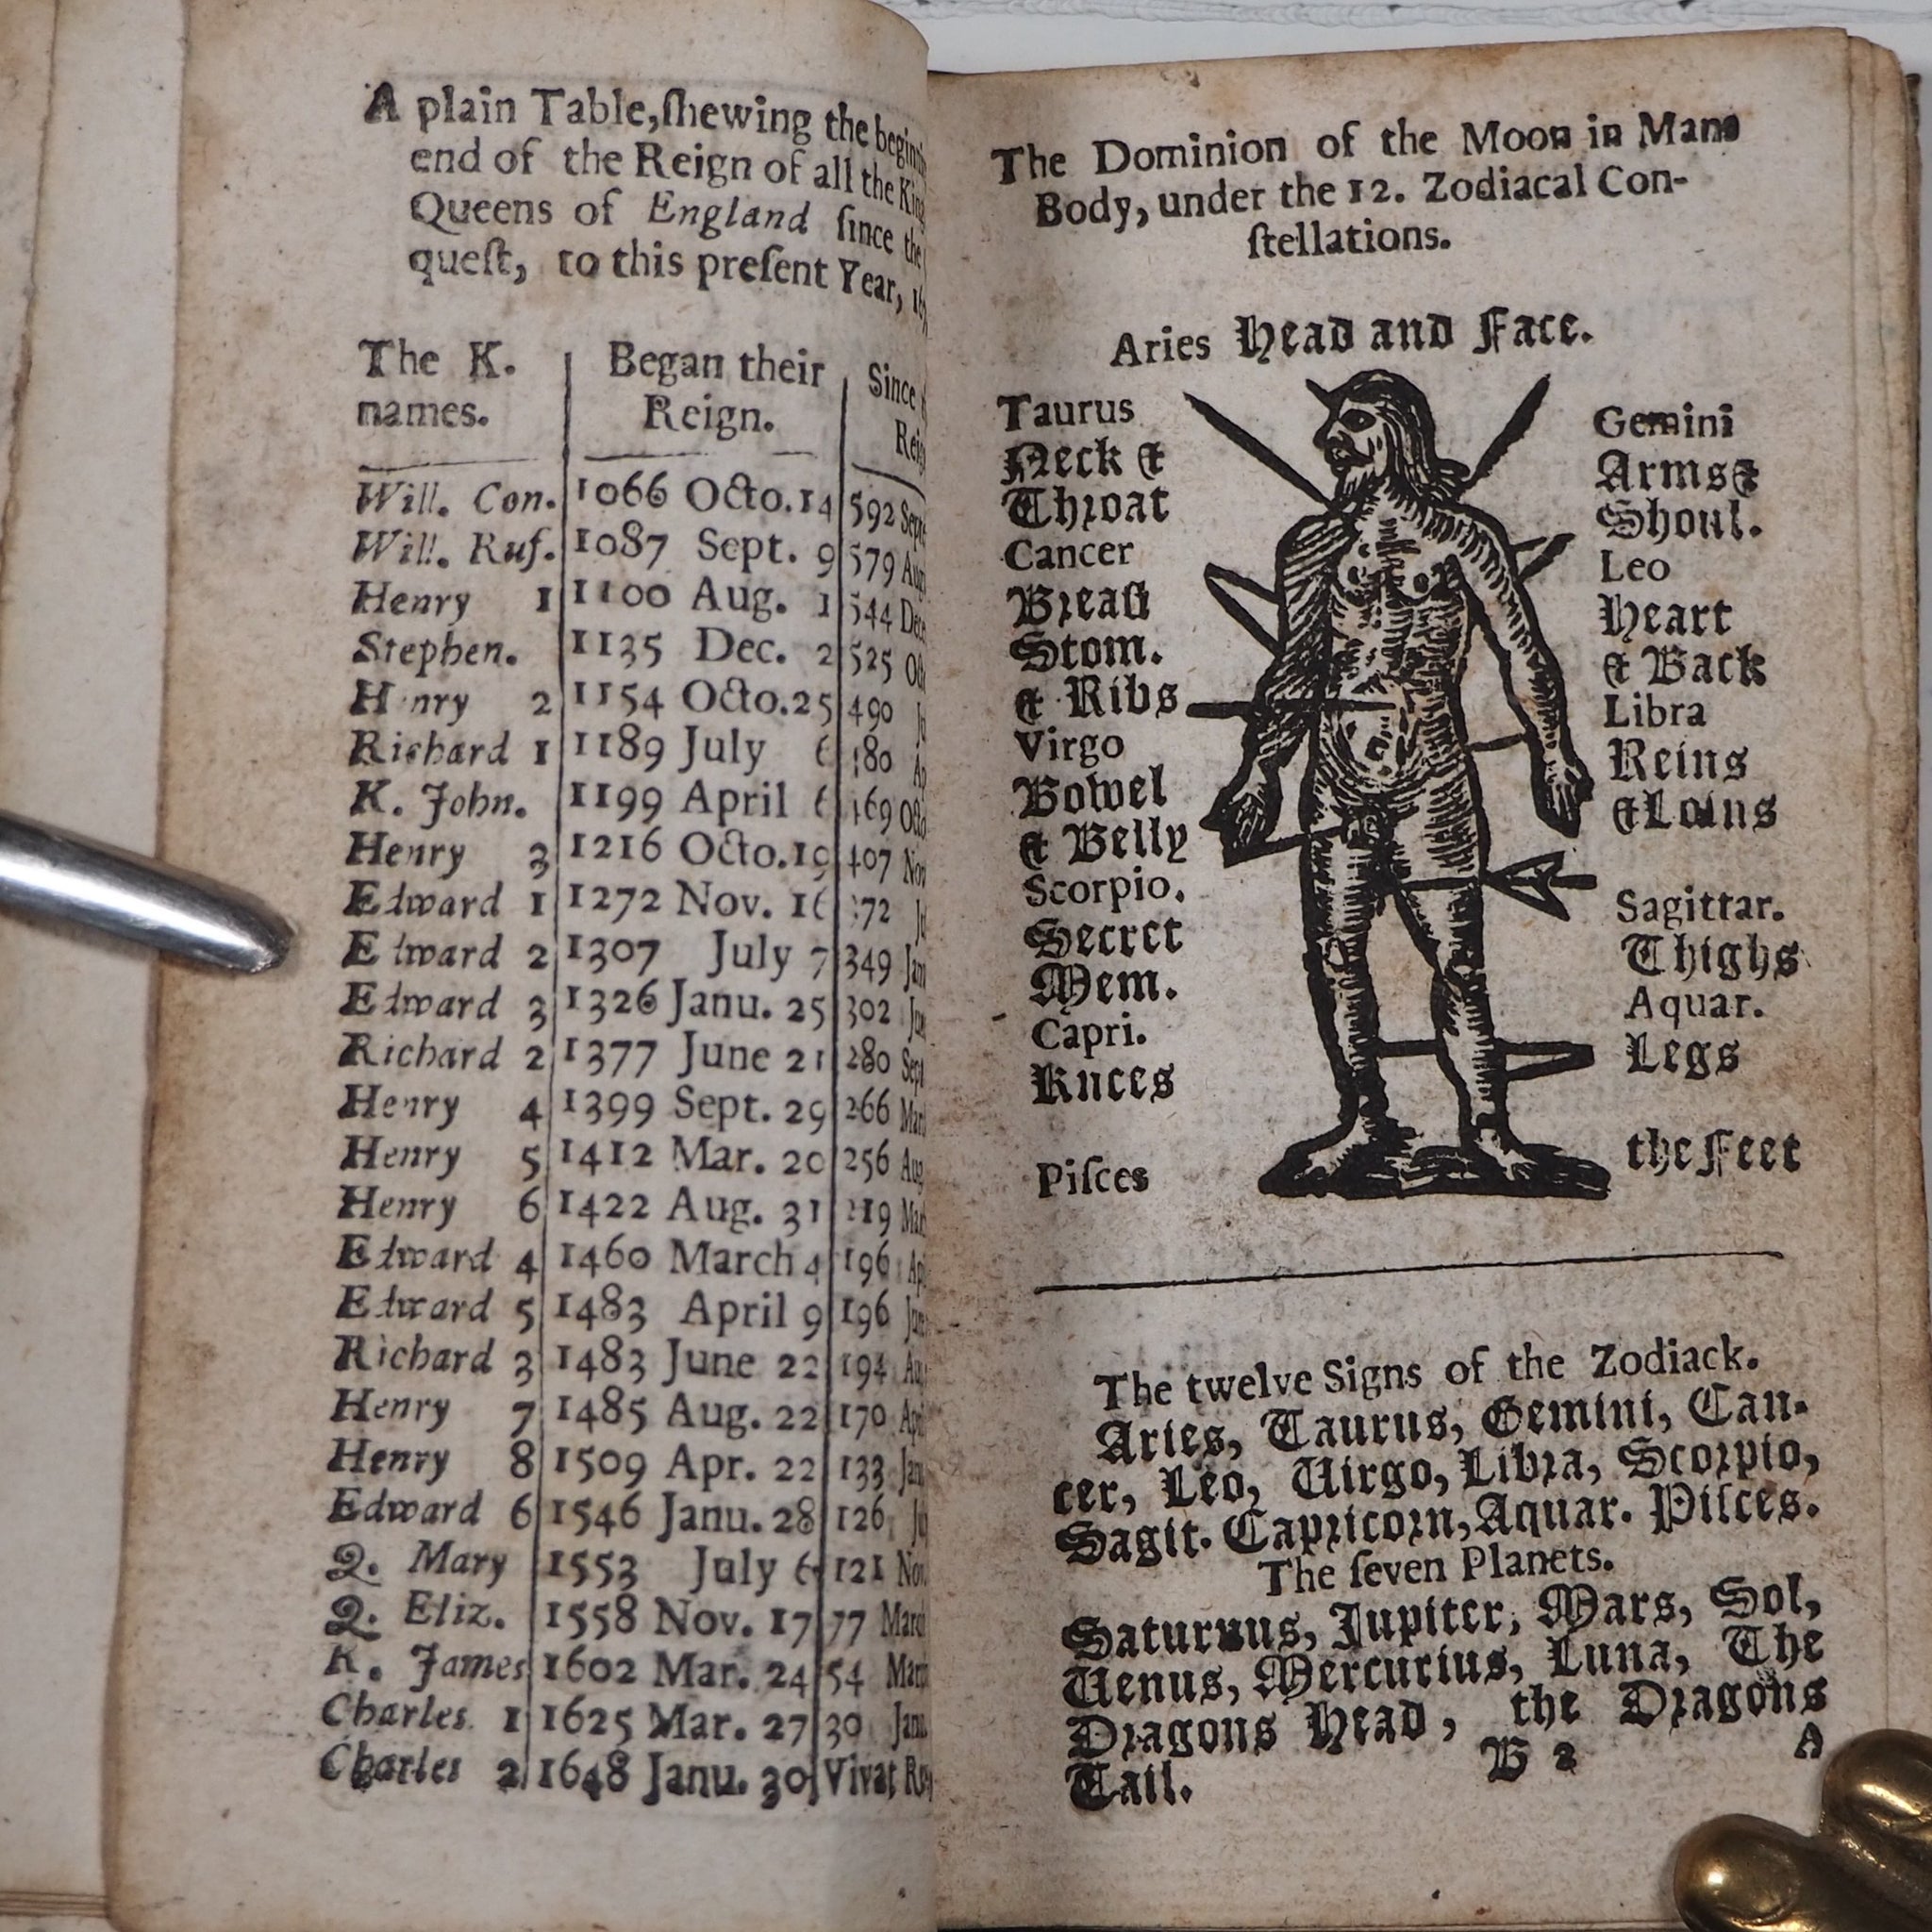 A plain Table, ſhewing the
end of the Reign of all the
Queens of England ſince the
queſt, to this preſent Year,
The K. names.
Began their Reign.
Since
Will. Con. 1066 Octo. 14 592
Will. Ruf. 1087 Sept. 9 579
Henry 1 1100 Aug. 1 544
Stephen. 1135 Dec. 2 525
H nry 2 1154 Octo. 25 490
Richard 1 1189 July 6 80
K. John. 1199 April 6 169
Henry 3 1216 Octo. 19 407
Edward 1 1272 Nov. 16 72
Edward 2 1307 July 7 349
Edward 3 1326 Janu. 25 302
Richard 2 1377 June 21 280
Henry 4 1399 Sept. 29 266
Henry 5 1412 Mar. 20 256
Henry 6 1422 Aug. 31 219
Edward 4 1460 March 4 196
Edward 5 1483 April 9 196
Richard 3 1483 June 22 194
Henry 7 1485 Aug. 22 170
Henry 8 1509 Apr. 22 133
Edward 6 1546 Janu. 28 126
Q. Mary 1553 July 6 121
Q. Eliz. 1558 Nov. 17 77
K. James 1602 Mar. 24 54
Charles 1 1625 Mar. 27 30
Charles 2 1648 Janu. 30 Vivat
The Dominion of the Moon in Mans
Body, under the 12. Zodiacal Con-
ſtellations.
Aries Head and Face.
Taurus
Neck &
Throat
Cancer
Breaſt
Stom.
& Ribs
Virgo
Bowel
& Belly
Scorpio.
Secret
Mem.
Capri.
Knees
Piſces
Gemini
Arms &
Shoul.
Leo
Heart
& Back
Libra
Reins
& Loins
Sagittar.
Thighs
Aquar.
Legs
the Feet
The twelve Signs of the Zodiack.
Aries, Taurus, Gemini, Can-
cer, Leo, Virgo, Libra, Scorpio,
Sagit. Capricorn, Aquar. Piſces.
The ſeven Planets.
Saturnus, Jupiter, Mars, Sol,
Venus, Mercurius, Luna, The
Dragons Head, the Dragons
Tail.
B 2 A